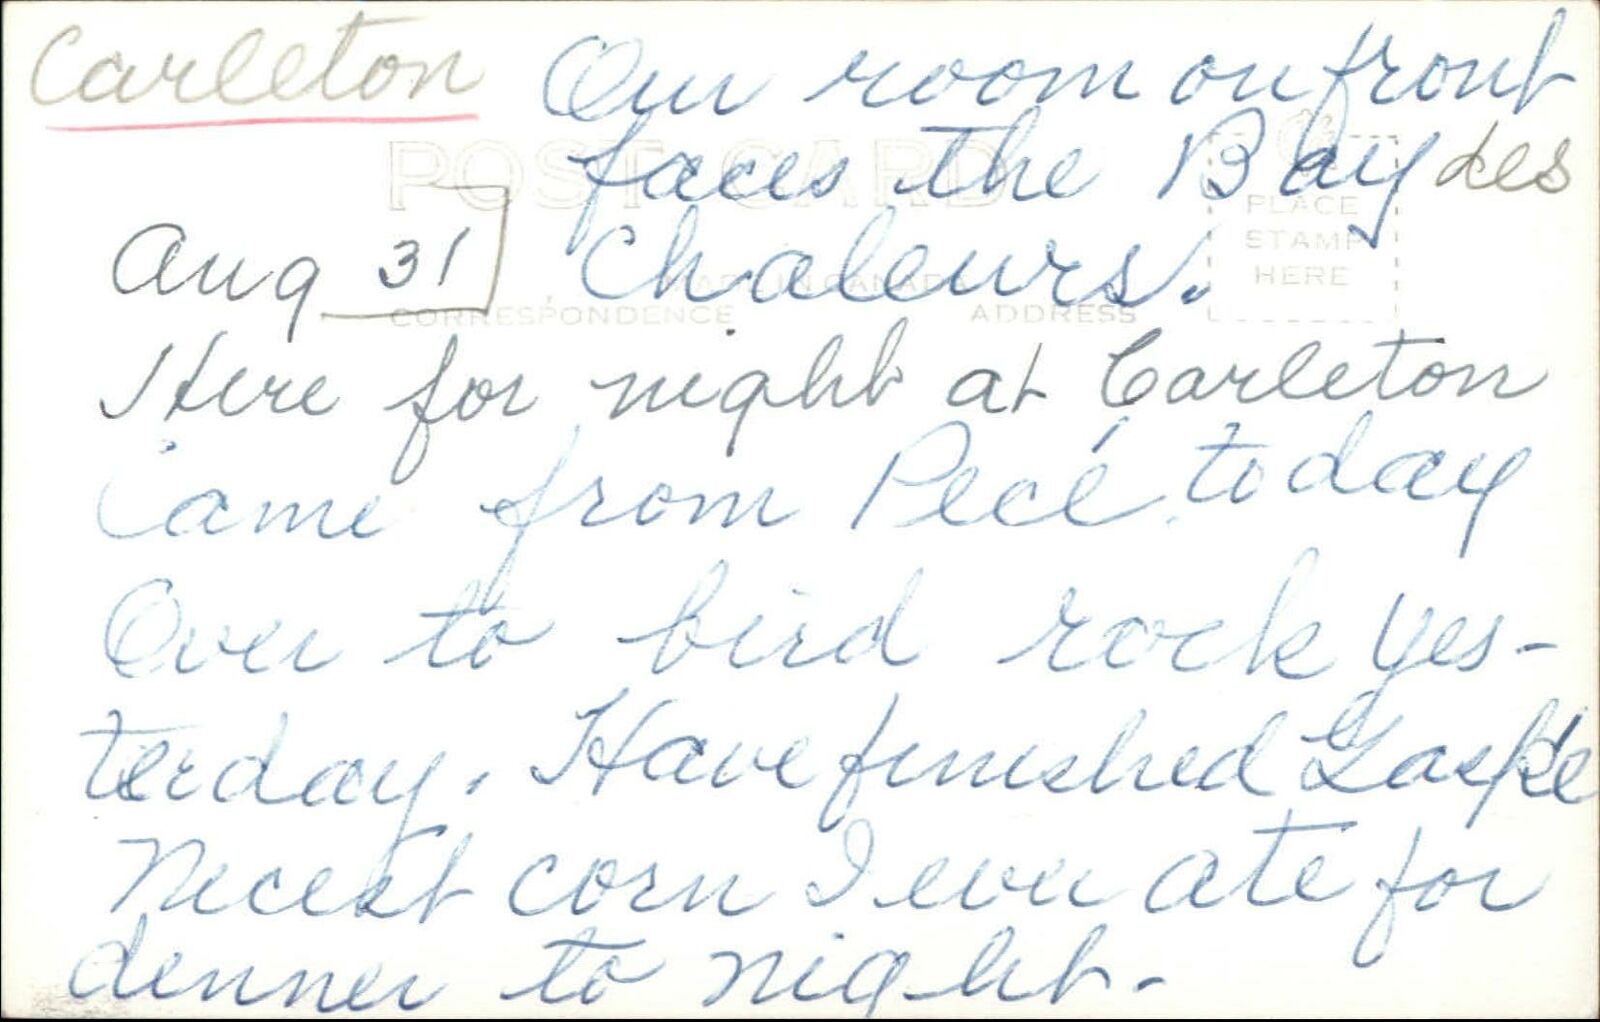 Carleton
Our room on front
faces the Bay des
Chaleurs.
POST CARD
PLACE
STAMP
HERE
MADE IN CANADA
CORRESPONDENCE
ADDRESS
Aug 31
Here for night at Carleton
Came from Pecé today
Over to bird rock yes-
terday. Have finished Gaspé
Nicest corn I ever ate for
dinner to night.